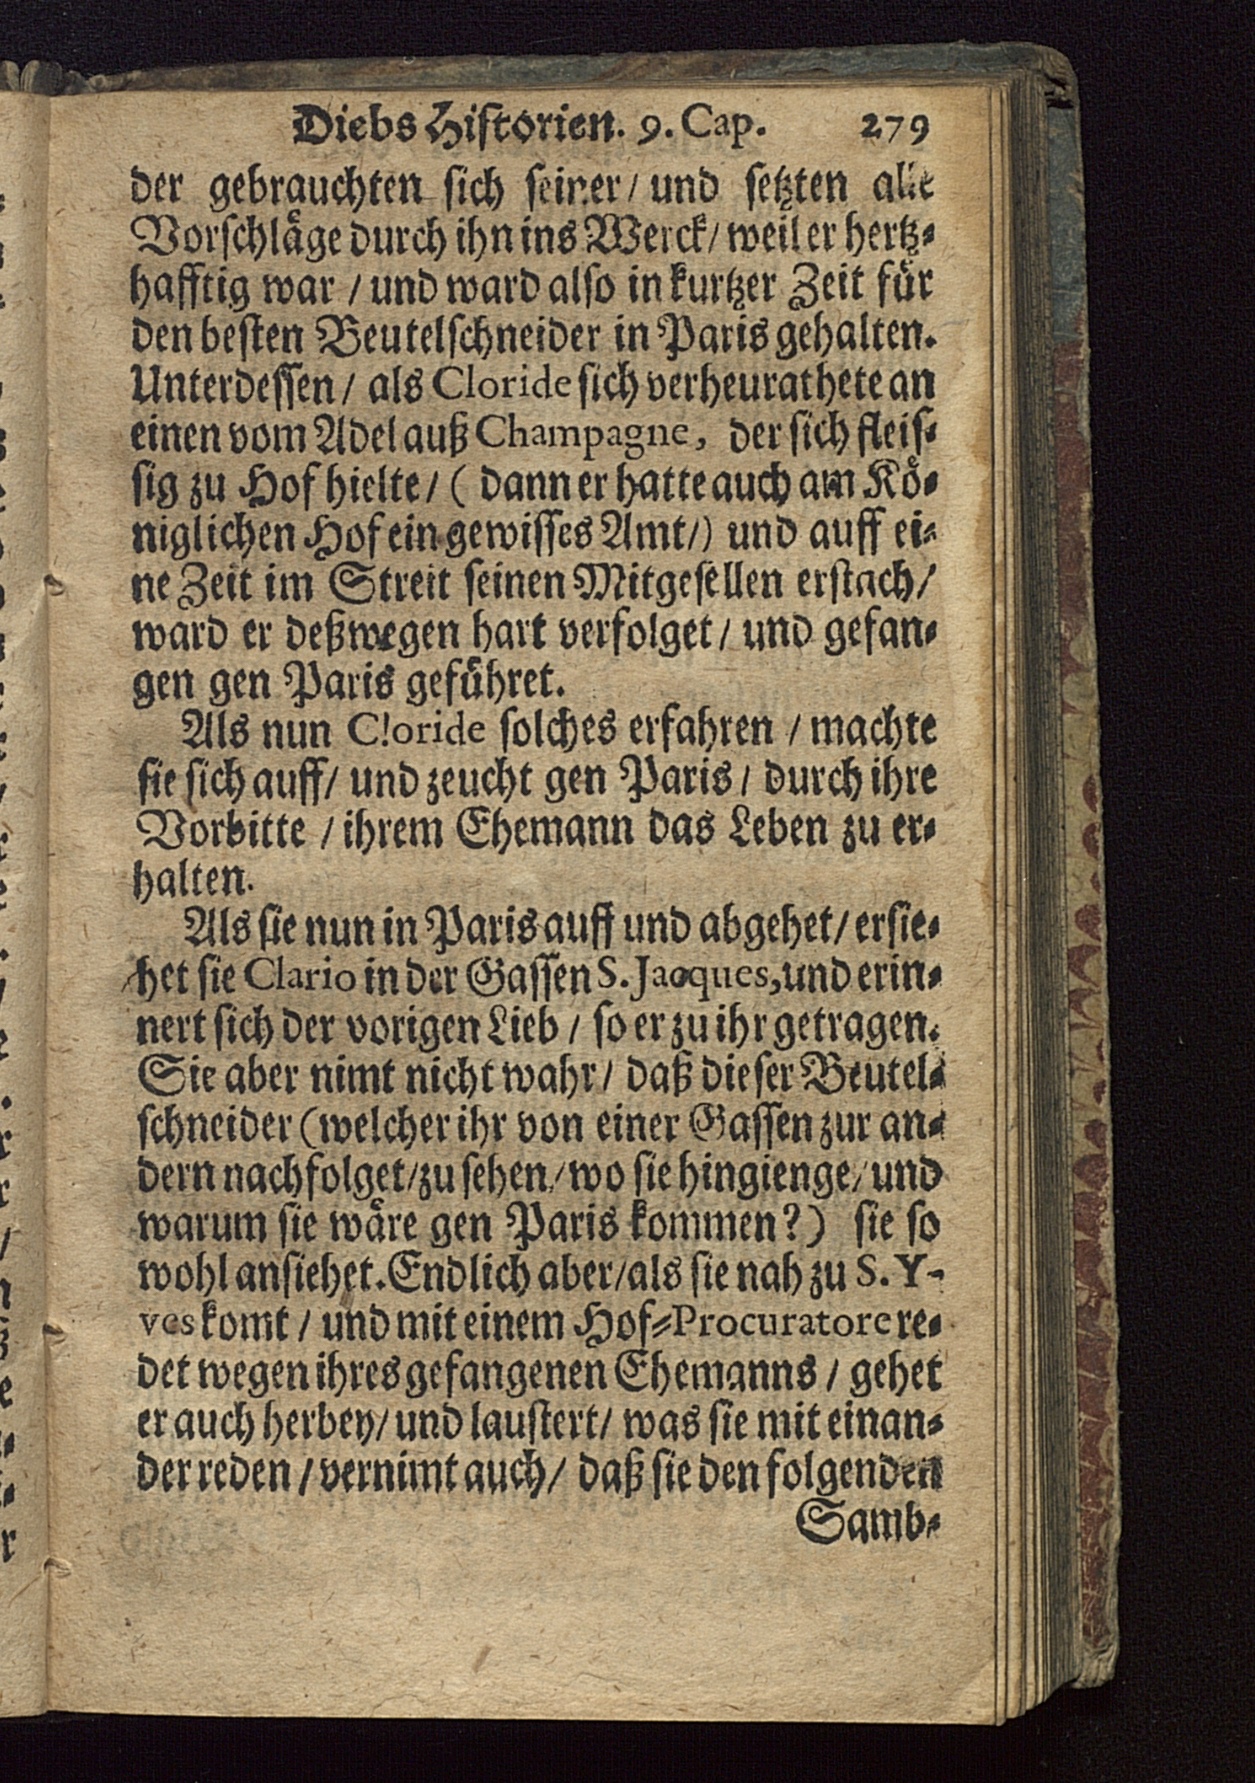 Diebs Historien. 9. Cap. 279
der gebrauchten sich seiner / und setzten alle
Vorschläge durch ihn ins Werck / weil er hertz-
hafftig war / und ward also in kurtzer Zeit für
den besten Beutelschneider in Paris gehalten.
Unterdessen / als Cloride sich verheurathete an
einen vom Adel auß Champagne, der sich fleis-
sig zu Hof hielte / ( dann er hatte auch am Kö-
niglichen Hof ein gewisses Amt /) und auff ei-
ne Zeit im Streit seinen Mitgesellen erstach /
ward er deßwegen hart verfolget / und gefan-
gen gen Paris geführet.
Als nun Cloride solches erfahren / machte
sie sich auff / und zeucht gen Paris / durch ihre
Vorbitte / ihrem Ehemann das Leben zu er-
halten.
Als sie nun in Paris auff und abgehet / ersie-
het sie Clario in der Gassen S. Jacques, und erin-
nert sich der vorigen Lieb / so er zu ihr getragen.
Sie aber nimt nicht wahr / daß dieser Beutel-
schneider (welcher ihr von einer Gassen zur an-
dern nachfolget / zu sehen / wo sie hingienge / und
warum sie wäre gen Paris kommen?) sie so
wohl ansiehet. Endlich aber / als sie nah zu S. Y-
ves komt / und mit einem Hof-Procuratore re-
det wegen ihres gefangenen Ehemanns / gehet
er auch herbey / und laustert / was sie mit einan-
der reden / vernimt auch / daß sie den folgenden
Samb-